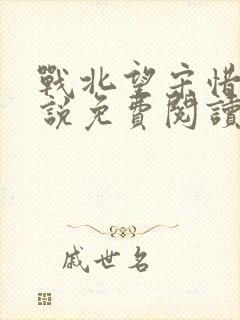 戰北望宋惜
說免費閱讀
戚世名